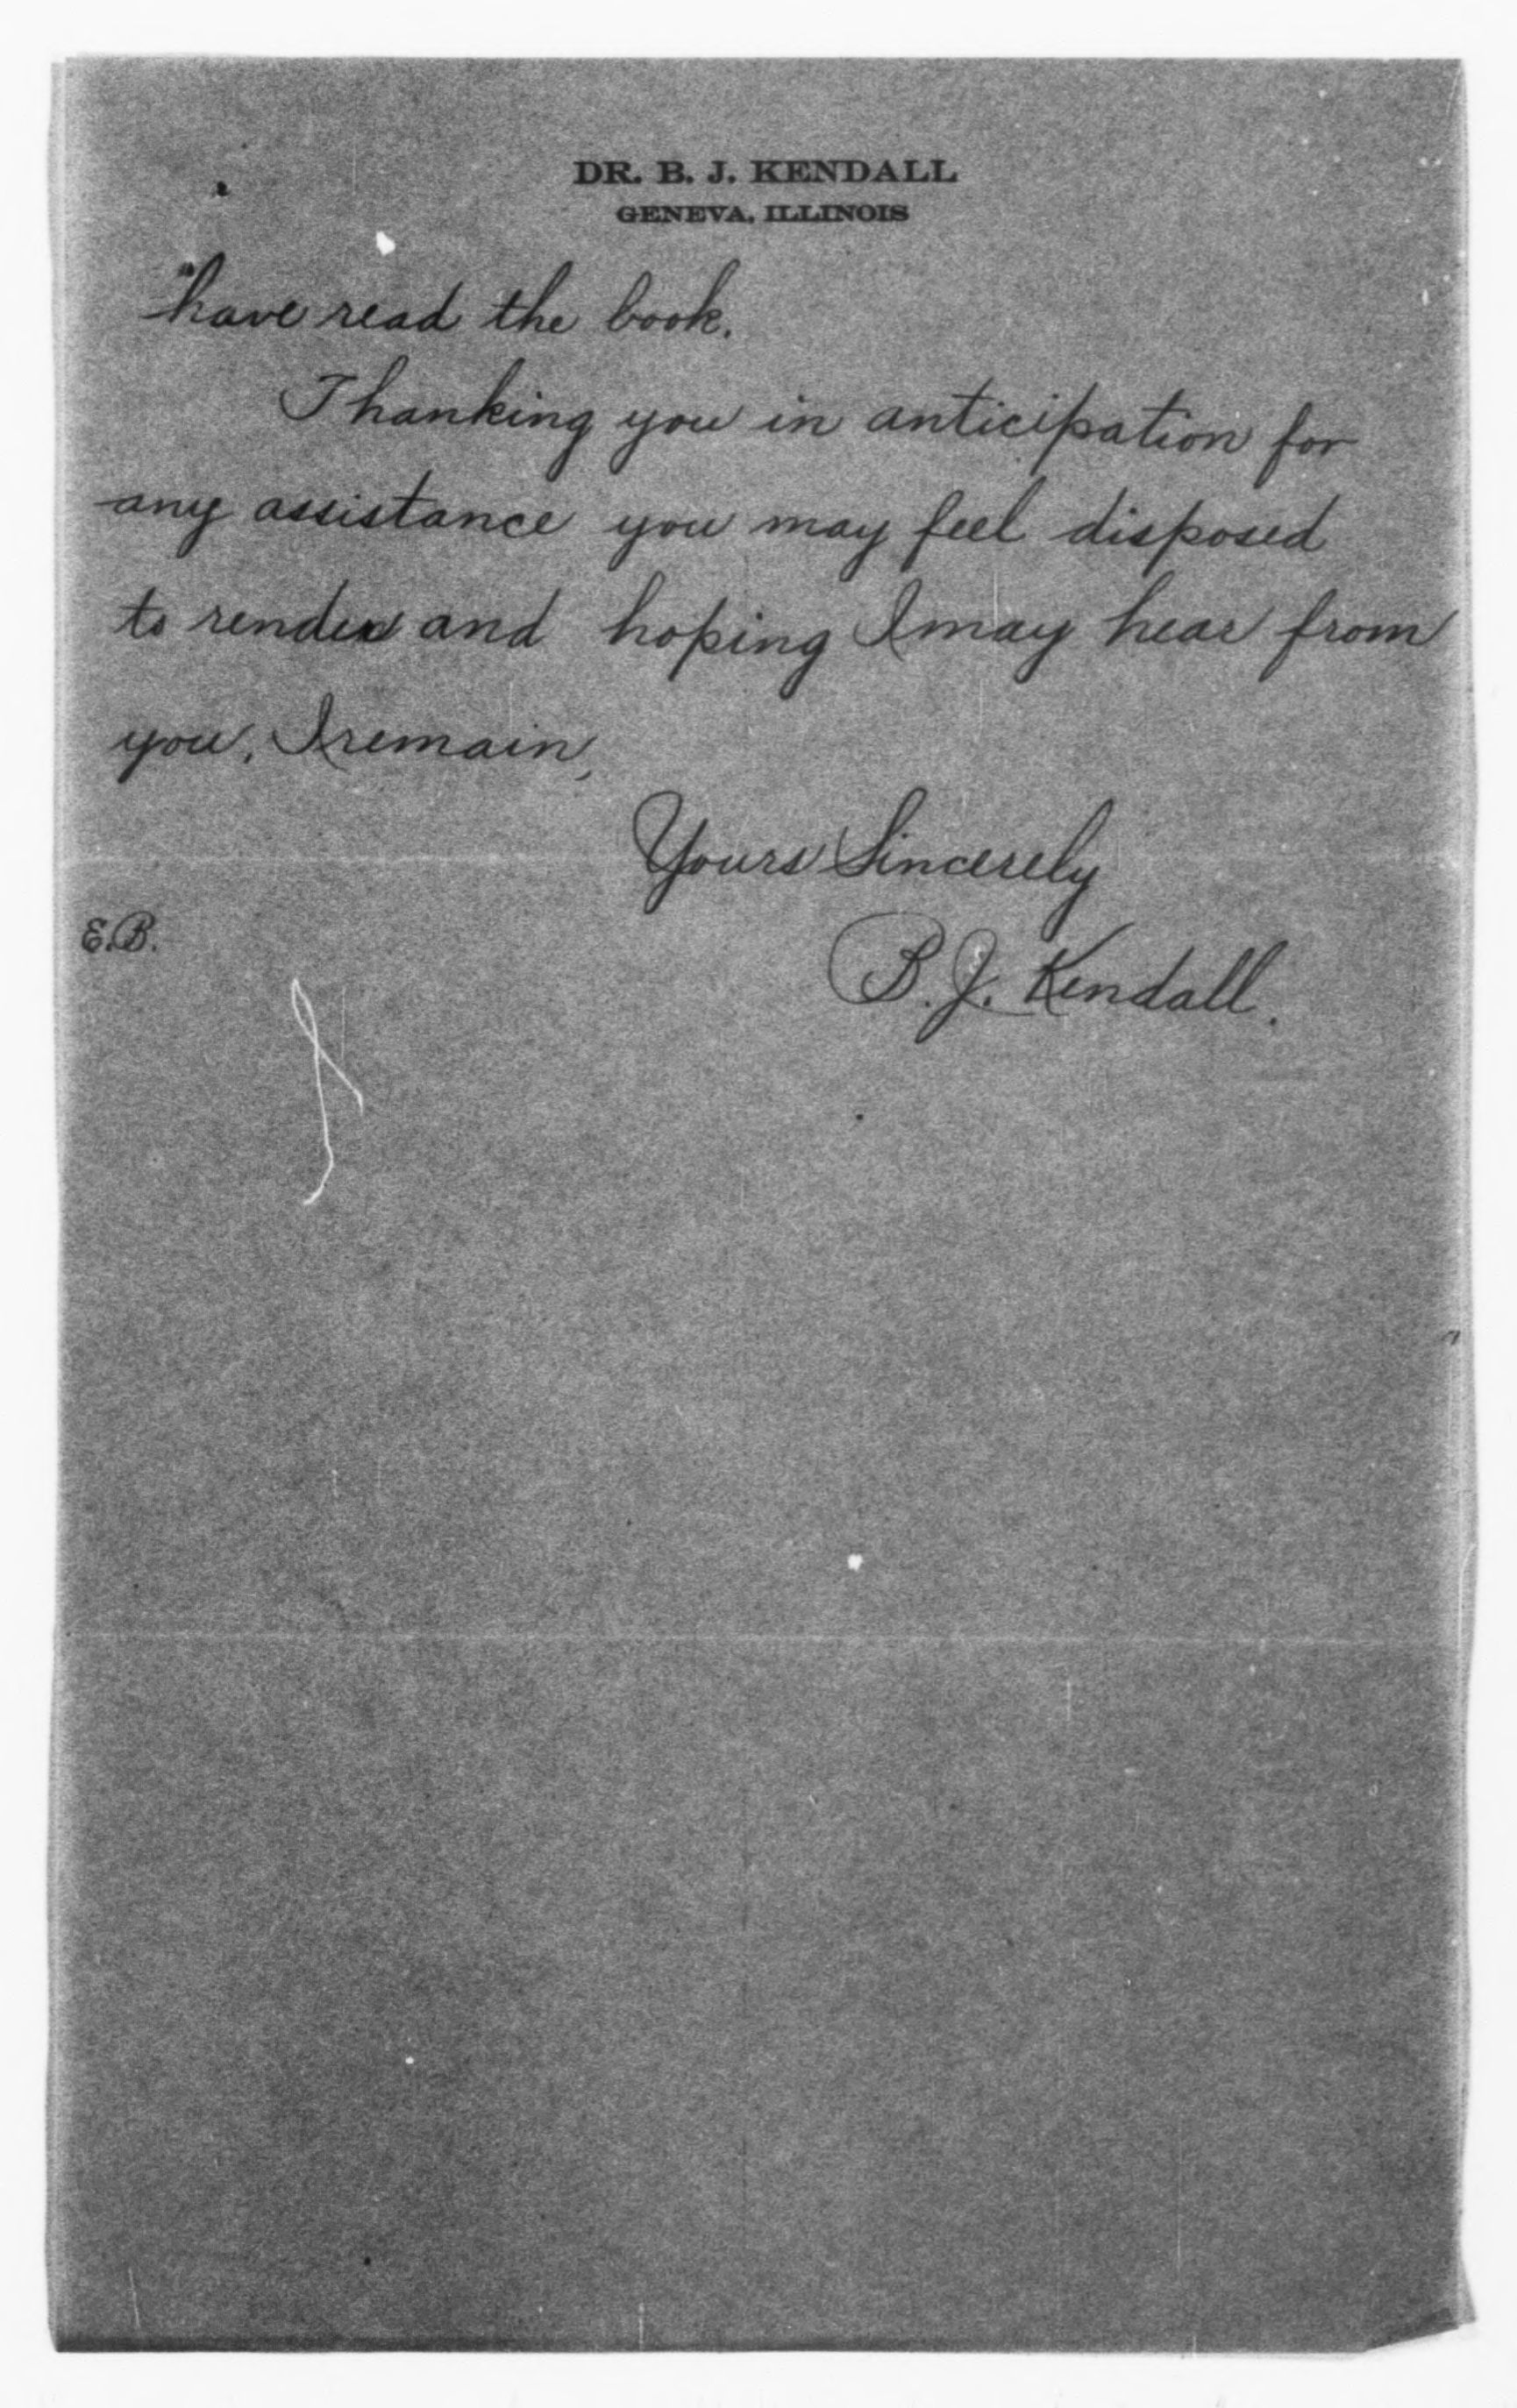 DR. B. J. KENDALL
GENEVA, ILLINOIS
have read the book.
Thanking you in anticipation for
any assistance you may feel disposed
to render and hoping I may hear from
you, I remain,
Yours Sincerely
E.B.
B. J. Kendall.